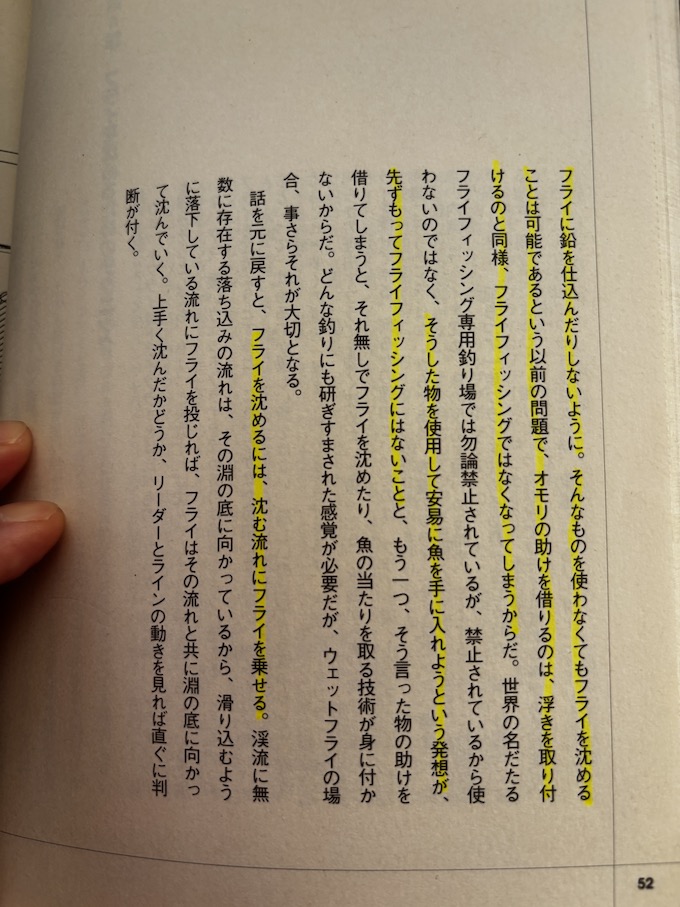 フライに鉛を仕込んだりしないように。そんなものを使わなくてもフライを沈める
ことは可能であるという以前の問題で、オモリの助けを借りるのは、浮きを取り付
けるのと同様、フライフィッシングではなくなってしまうからだ。世界の名だたる
フライフィッシング専用釣り場では勿論禁止されているが、禁止されているから使
わないのではなく、そうした物を使用して安易に魚を手に入れようという発想が、
先ずもってフライフィッシングにはないことと、もう一つ、そう言った物の助けを
借りてしまうと、それ無しでフライを沈めたり、魚の当たりを取る技術が身に付か
ないからだ。どんな釣りにも研ぎすまされた感覚が必要だが、ウェットフライの場
合、事さらそれが大切となる。
話を元に戻すと、フライを沈めるには、沈む流れにフライを乗せる。渓流に無
数に存在する落ち込みの流れは、その淵の底に向かっているから、滑り込むよう
に落下している流れにフライを投じれば、フライはその流れと共に淵の底に向かっ
て沈んでいく。上手く沈んだかどうか、リーダーとラインの動きを見れば直ぐに判
断が付く。
52